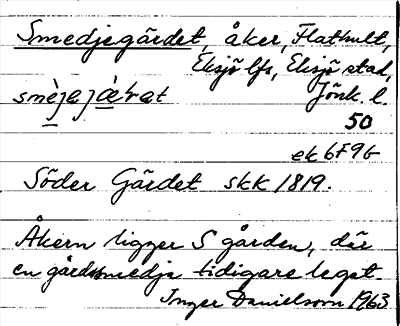 Smedjegärdet, åker, Flathult,
Eksjö lfs, Eksjö stad,
Jönk. l.
50
ek 6F9b
Söder Gärdet skk 1819.
Åkern ligger S gården, där
en gårdssmedja tidigare legat.
Inger Danielsson 1963